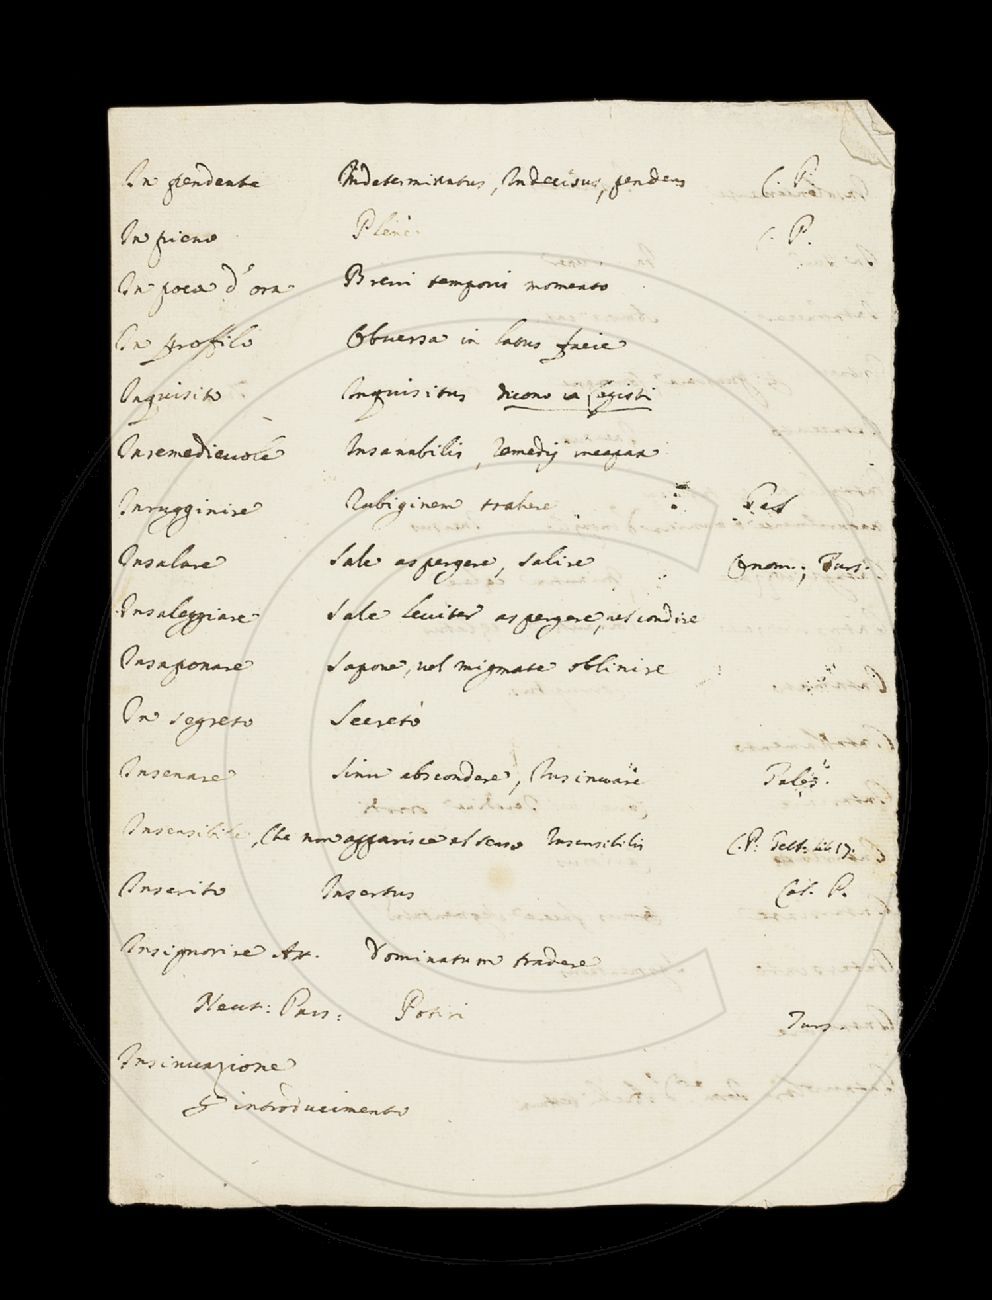 In pendente Indeterminatus, Indecisus, pendens C. P.
In pieno Plene C. P.
In poca d'ora Brevi temporis momento
In proffilo Obversa in latus facie
Inquisito Inquisitus dicono ia Legisti
Inremedievole Insanabilis, remedij incapax
Inrugginire Rubiginem trahere
Insalare Sale aspergere, salire Onom.; Turs.
Insaleggiare Sale leviter aspergere, vel condire
Insaponare Sapone, vel smigmate oblinire
In segreto Secretò
Insenare Sinu abscondere, Insinuare
Insensibile, che non apparisce al senso Insensibilis C. P. Gell: lib 17.
Inserito Insertus Cal. P.
Insignorire Att. Dominatum tradere
Neut: Pass: Potiri Turs
Insinuazione
P introducimento